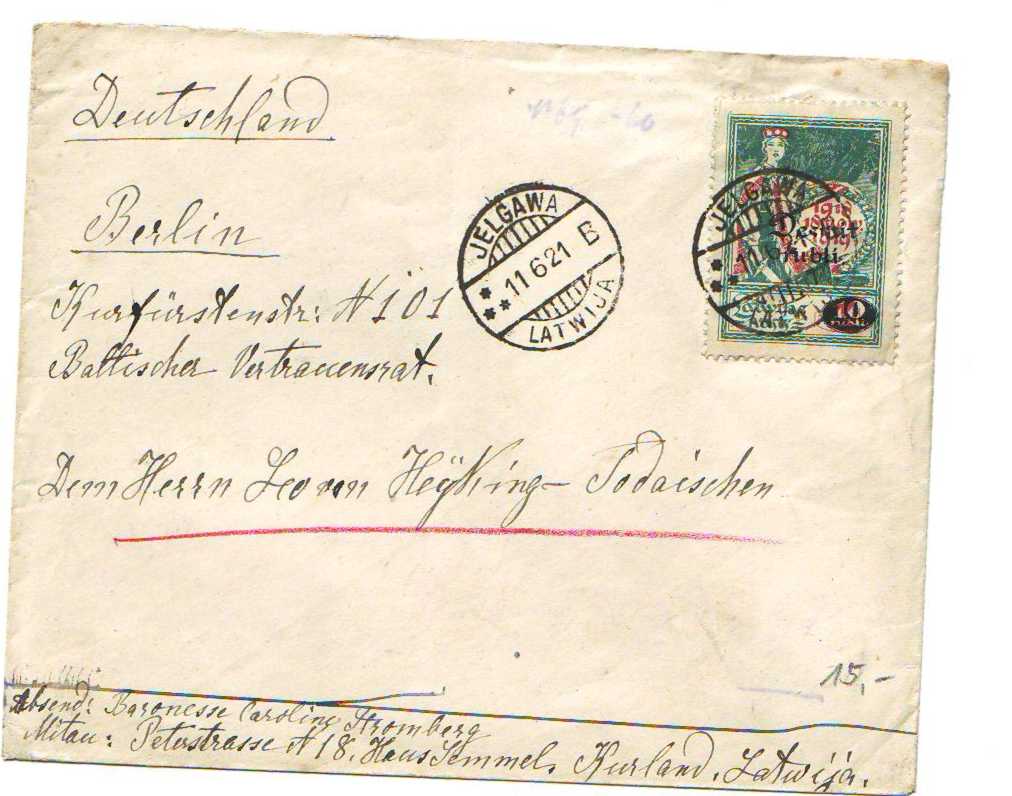 Deutschland
Berlin
Kurfürstenstr: N 101
Baltischer Vertrauensrat.
Dem Herrn Leo von Heÿking- Todaischen
JELGAWA
11 6 21 B
LATWIJA
JELGAWA
Desmit
rubli
10
15,-
Absend: Baronesse Caroline Stromberg
Mitau: Peterstrasse N 18. Haus Semmel. Kurland. Latwija.